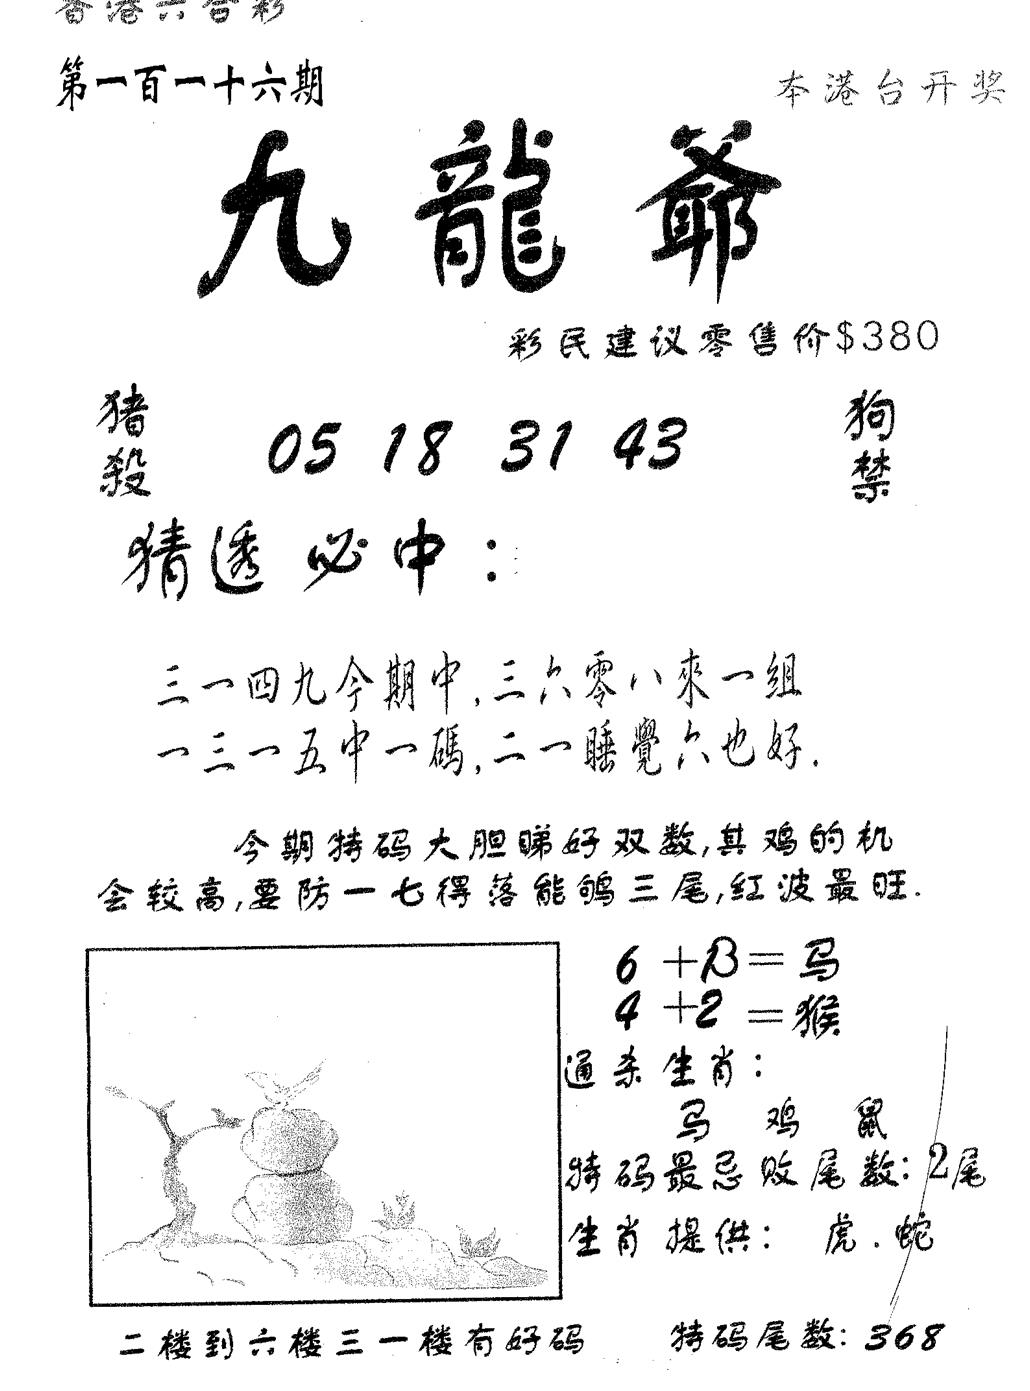 香港六合彩
第一百一十六期
本港台开奖
九龍爺
彩民建议零售价$380
猪殺
05 18 31 43
狗禁
猜透必中：
三一四九今期中,三六零八來一组
一三一五中一碼,二一睡覺六也好.
今期特码大胆睇好双数,其鸡的机
会较高,要防一七得落能鸲三尾,红波最旺.
6+13=马
4+2=猴
通杀生肖：
马 鸡 鼠
特码最忌败尾数：2尾
生肖提供： 虎.蛇
二楼到六楼三一楼有好码
特码尾数：368